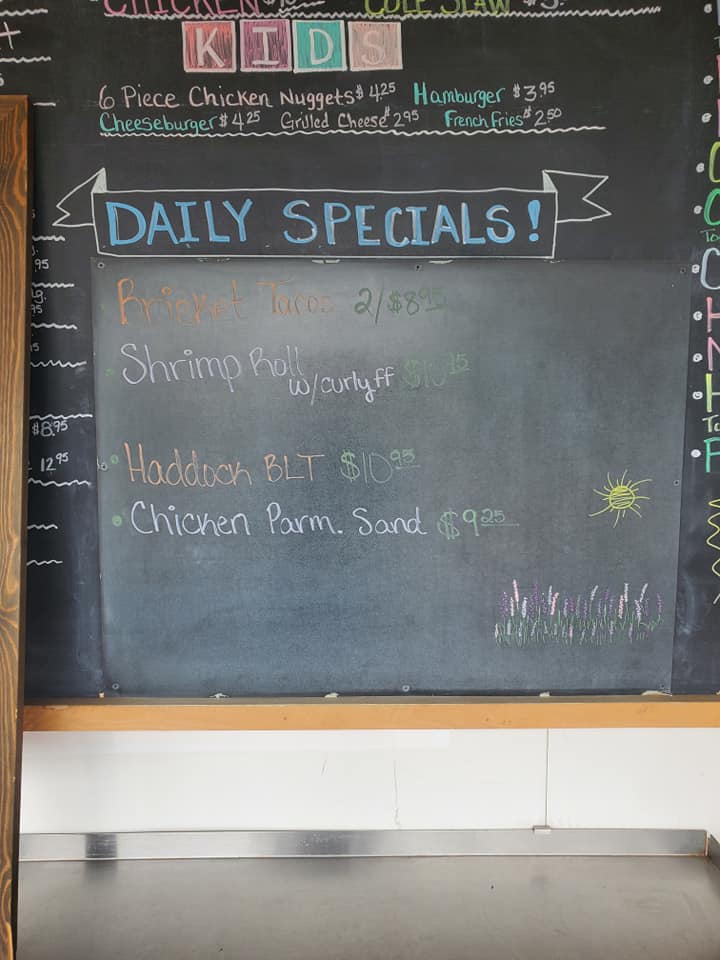 CHICKEN COLE SLAW
KIDS
6 Piece Chicken Nuggets $4.25 Hamburger $3.95
Cheeseburger $4.25 Grilled Cheese $2.95 French Fries $2.50
DAILY SPECIALS!
Brisket Tacos 2/$8.95
Shrimp Roll
w/curly ff
• Haddock BLT $10.95
• Chicken Parm. Sand $9.25
$8.95
12.95